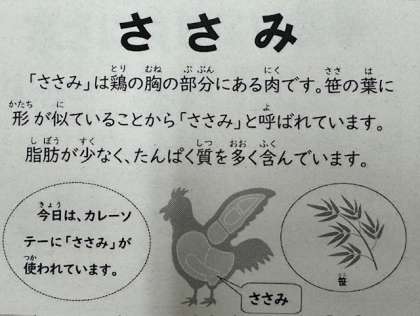 ささみ
「ささみ」は鶏の胸の部分にある肉です。笹の葉に
形が似ていることから「ささみ」と呼ばれています。
脂肪が少なく、たんぱく質を多く含んでいます。
今日は、カレーソ
テーに「ささみ」が
使われています。
ささみ
笹